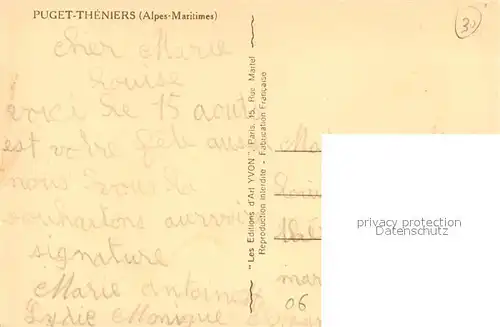 PUGET-THÉNIERS (Alpes-Maritimes)
30
cher Marie
Louise
voici le 15 aout
est votre fête aussi
nous vous la
souhaitons aurvoir
signature
Marie Antoinette
Lydie Monique
"Les Editions d'Art YVON", Paris, 15, Rue Martel
Reproduction interdite - Fabrication Française
06
privacy protection
Datenschutz